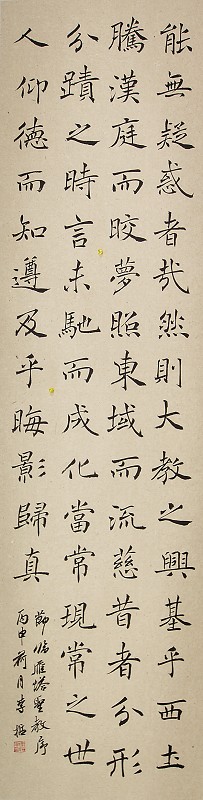 能無疑惑者哉然則大教之興基乎西土
騰漢庭而皎夢照東域而流慈昔者分形
分蹟之時言未馳而成化當常現常之世
人仰德而知遵及乎晦影歸真
節臨雁塔聖教序
丙申前月李